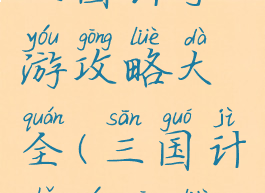 yóu gōng lüè dà
游攻略大
quán sān guó jì
全(三国计